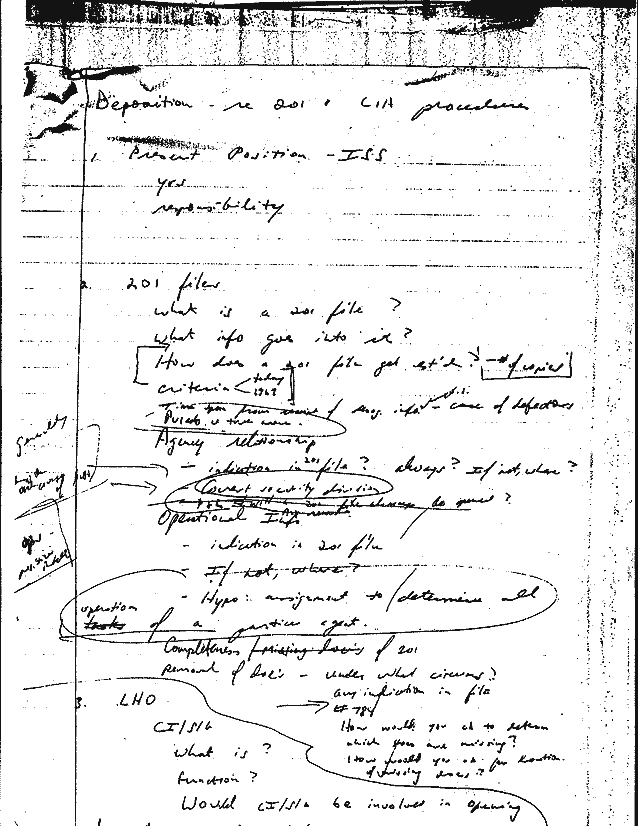 Deposition - re 201 & CIA procedures
1. Present Position - ISS
yes
responsibility
2. 201 files
What is a 201 file ?
What info goes into it ?
How does a 201 file get est'd ? - # of copies
criteria < today
1963
of orig. info - case of defectors
Agency relationship
generally
- indication in 201 file? always? If not, where?
Covert security division
Operational Info
- indication in 201 file
- If not, where?
- Hypo: assignment to determine all
operation
of a particular agent.
Completeness / missing docs of 201
Removal of docs - under what circums?
any indication in file
3. LHO
CI/SIG
How would you ck to determ
which ones are missing?
What is ?
How would you ck for location
of missing docs ?
Function ?
Would CI/SIG be involved in opening